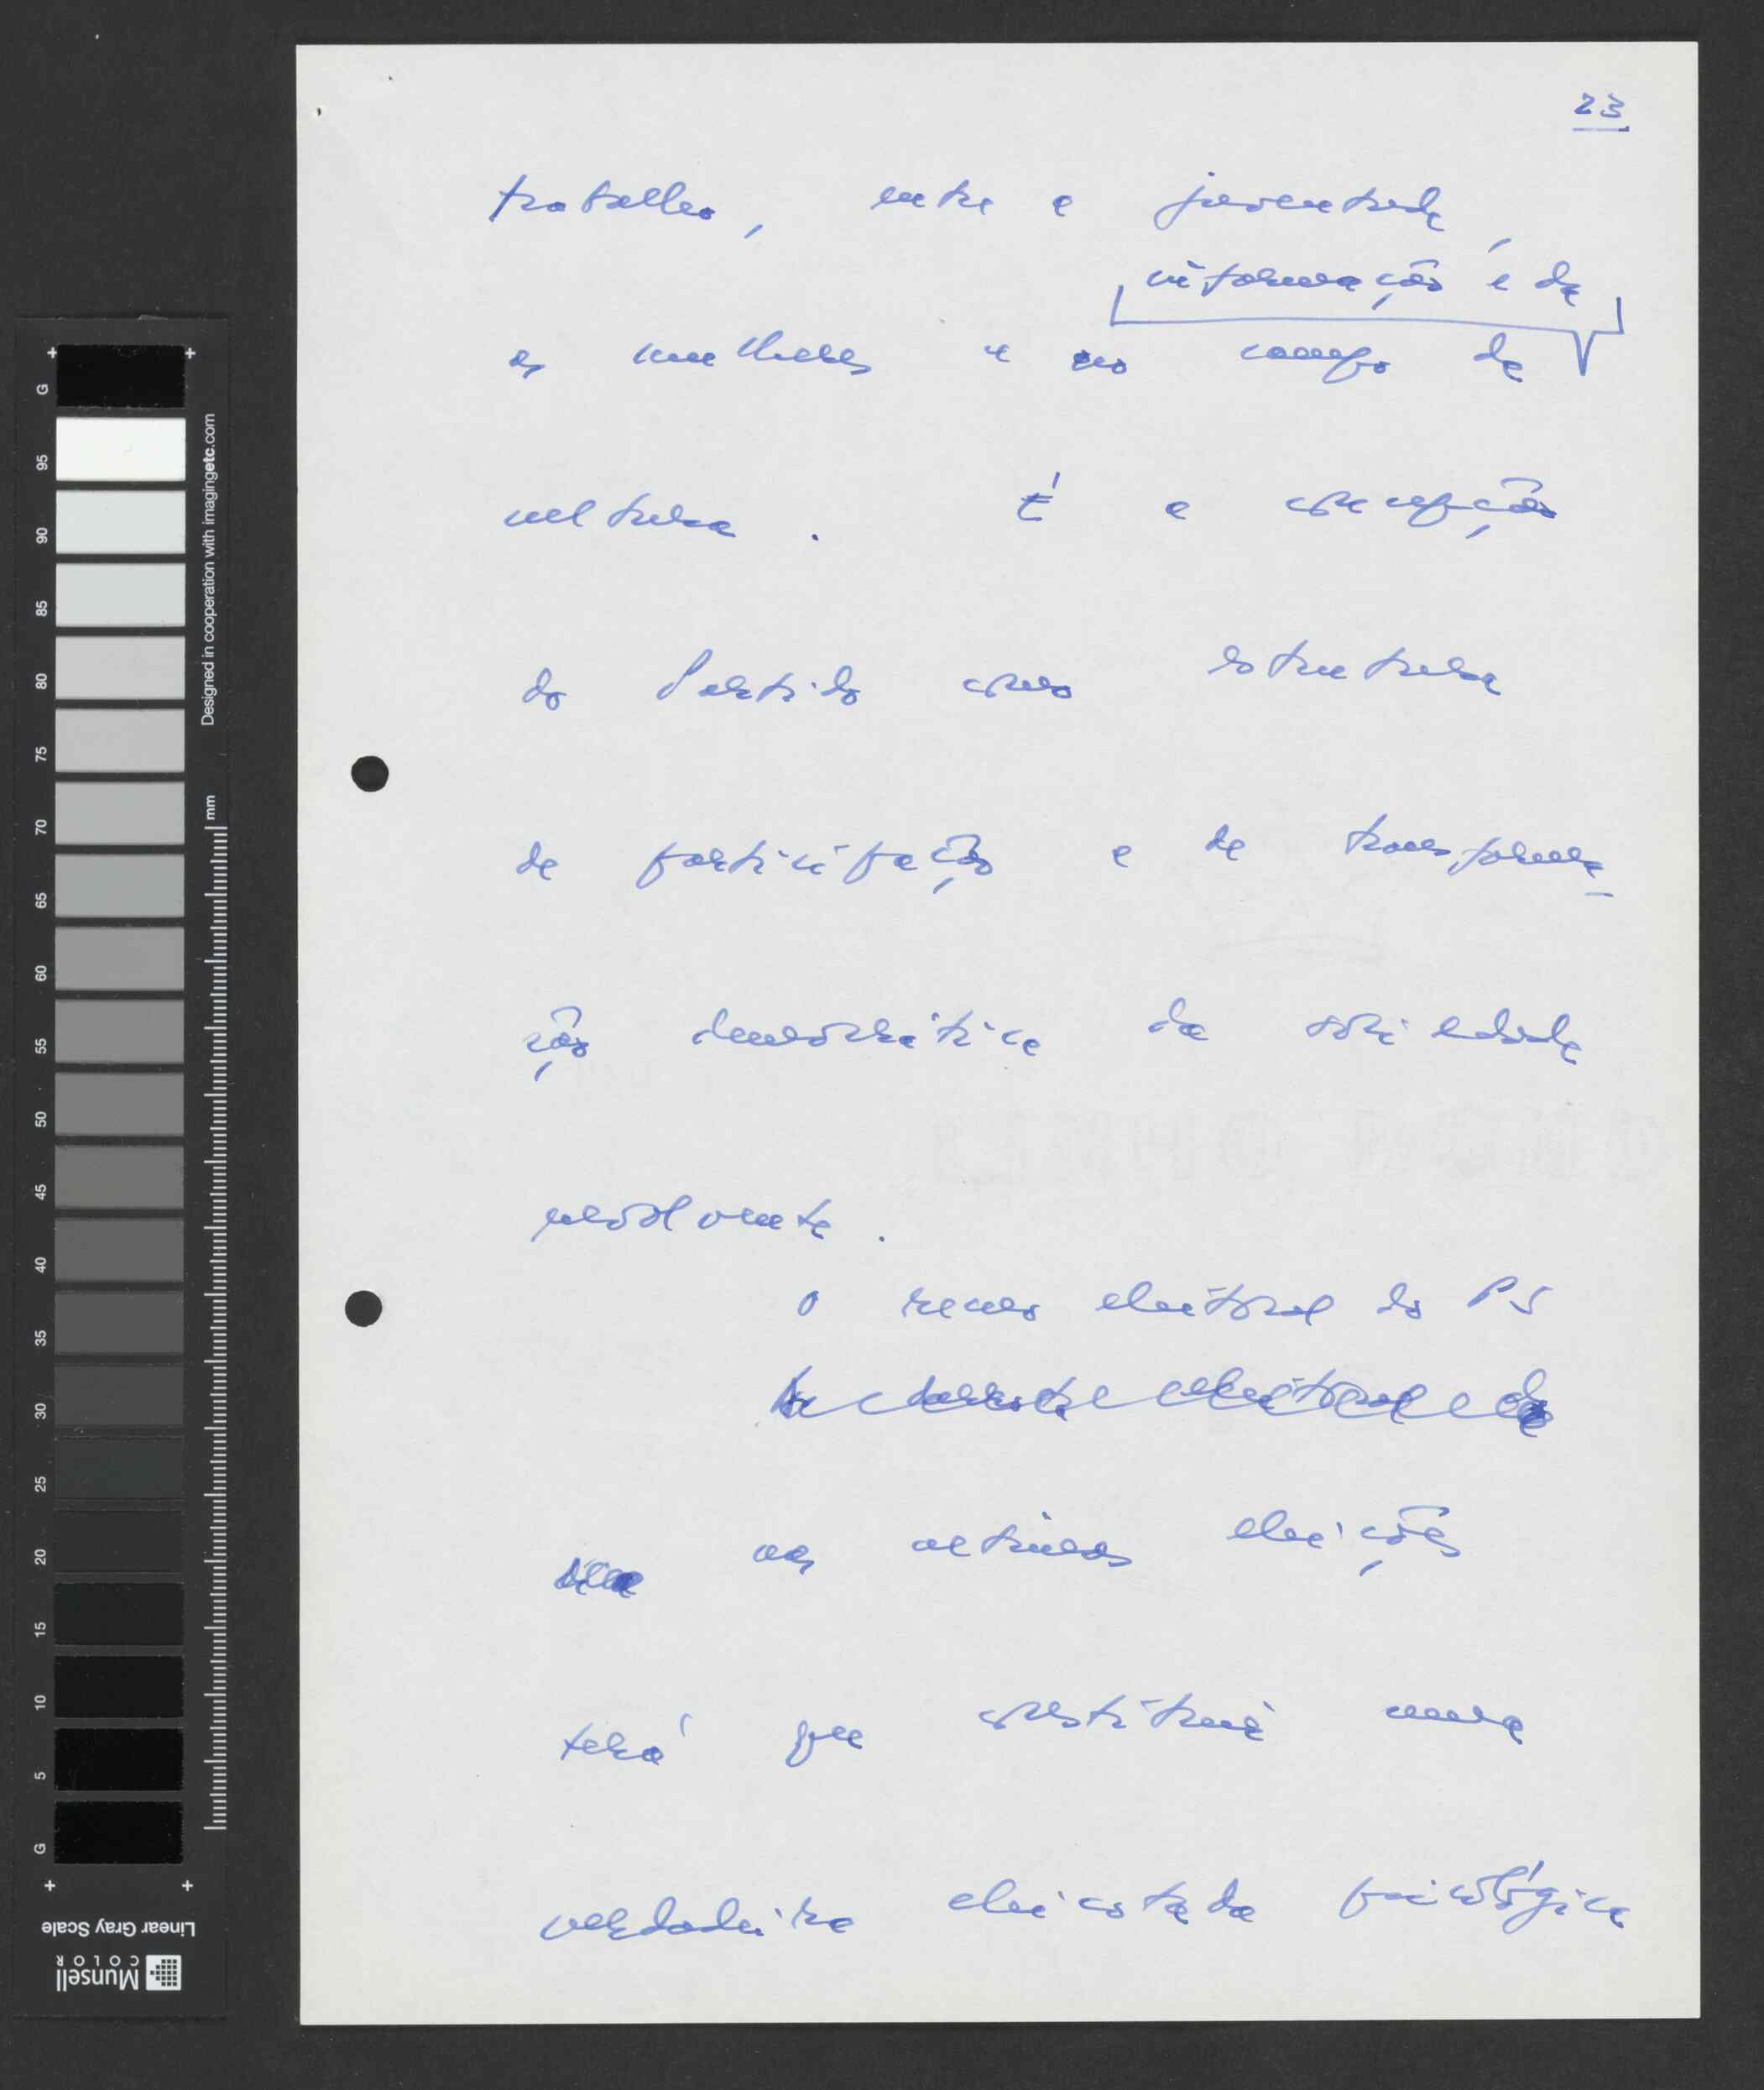 23
trabalho, entre a juventude,
informação e da
as mulheres e no campo da
cultura. É a concepção
do Partido como estrutura
de participação e de transforma-
ção democrática da sociedade
envolvente.
O recuo eleitoral do PS
derrota eleitoral do
nas últimas eleições
terá que constituir uma
verdadeira chicotada psicológica
G 95 90 85 80 75 70 65 60 55 50 45 40 35 30 25 20 15 10 5 G
mm
Designed in cooperation with imagingetc.com
Linear Gray Scale
Munsell
COLOR